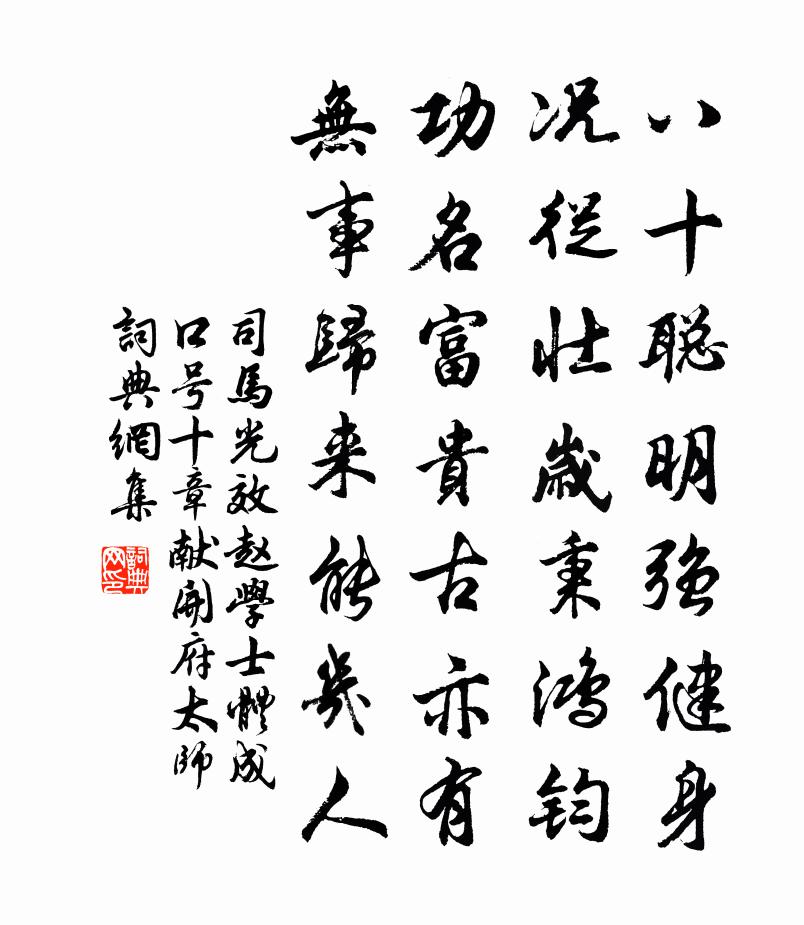 八十聪明强健身
况從壮歲秉鴻鈞
功名富貴古亦有
無事歸来能幾人
司馬光效赵學士體成
口号十章献開府太師
詞典網集
詞典网印